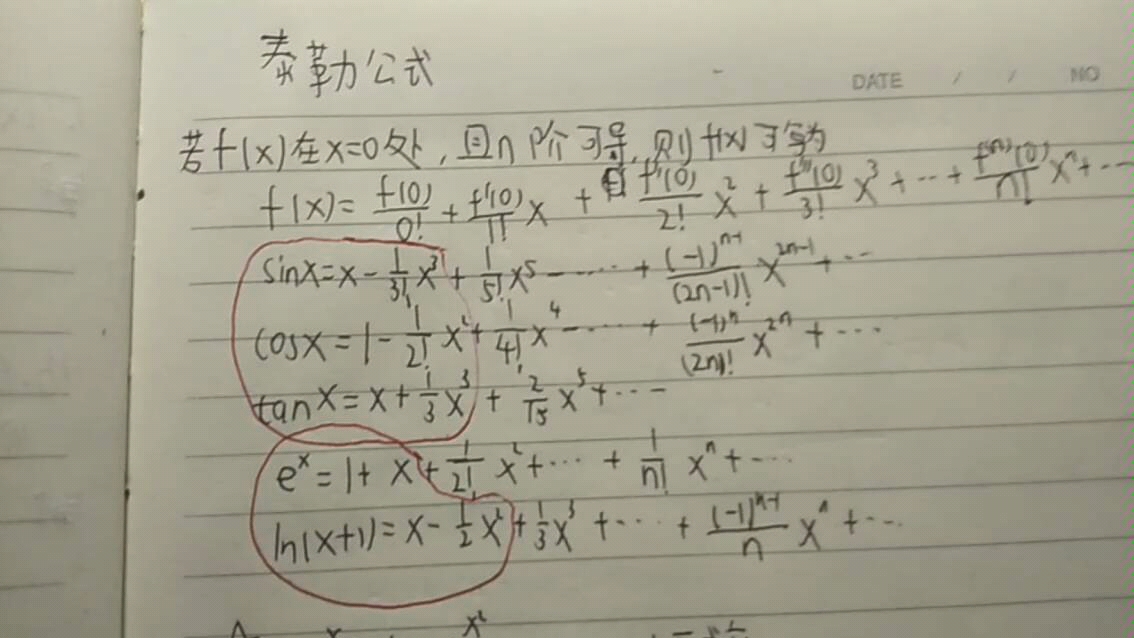 泰勒公式
DATE / / NO
若f(x)在x=0处,且n阶可导,则f(x)可写为
f(x)= f(0)/0! + f'(0)/1! x + f''(0)/2! x² + f'''(0)/3! x³ + ··· + f⁽ⁿ⁾(0)/n! xⁿ + ···
sinx=x- 1/3! x³ + 1/5! x⁵ - ····· + (-1)ⁿ⁻¹/(2n-1)! x²ⁿ⁻¹ + ···
cosx=1- 1/2! x² + 1/4! x⁴ - ····· + (-1)ⁿ/(2n)! x²ⁿ + ···
tanx=x+ 1/3 x³ + 2/15 x⁵ + ···
eˣ=1+x+ 1/2! x² + ··· + 1/n! xⁿ + ···
ln(x+1)=x- 1/2 x² + 1/3 x³ + ··· + (-1)ⁿ⁻¹/n xⁿ + ···